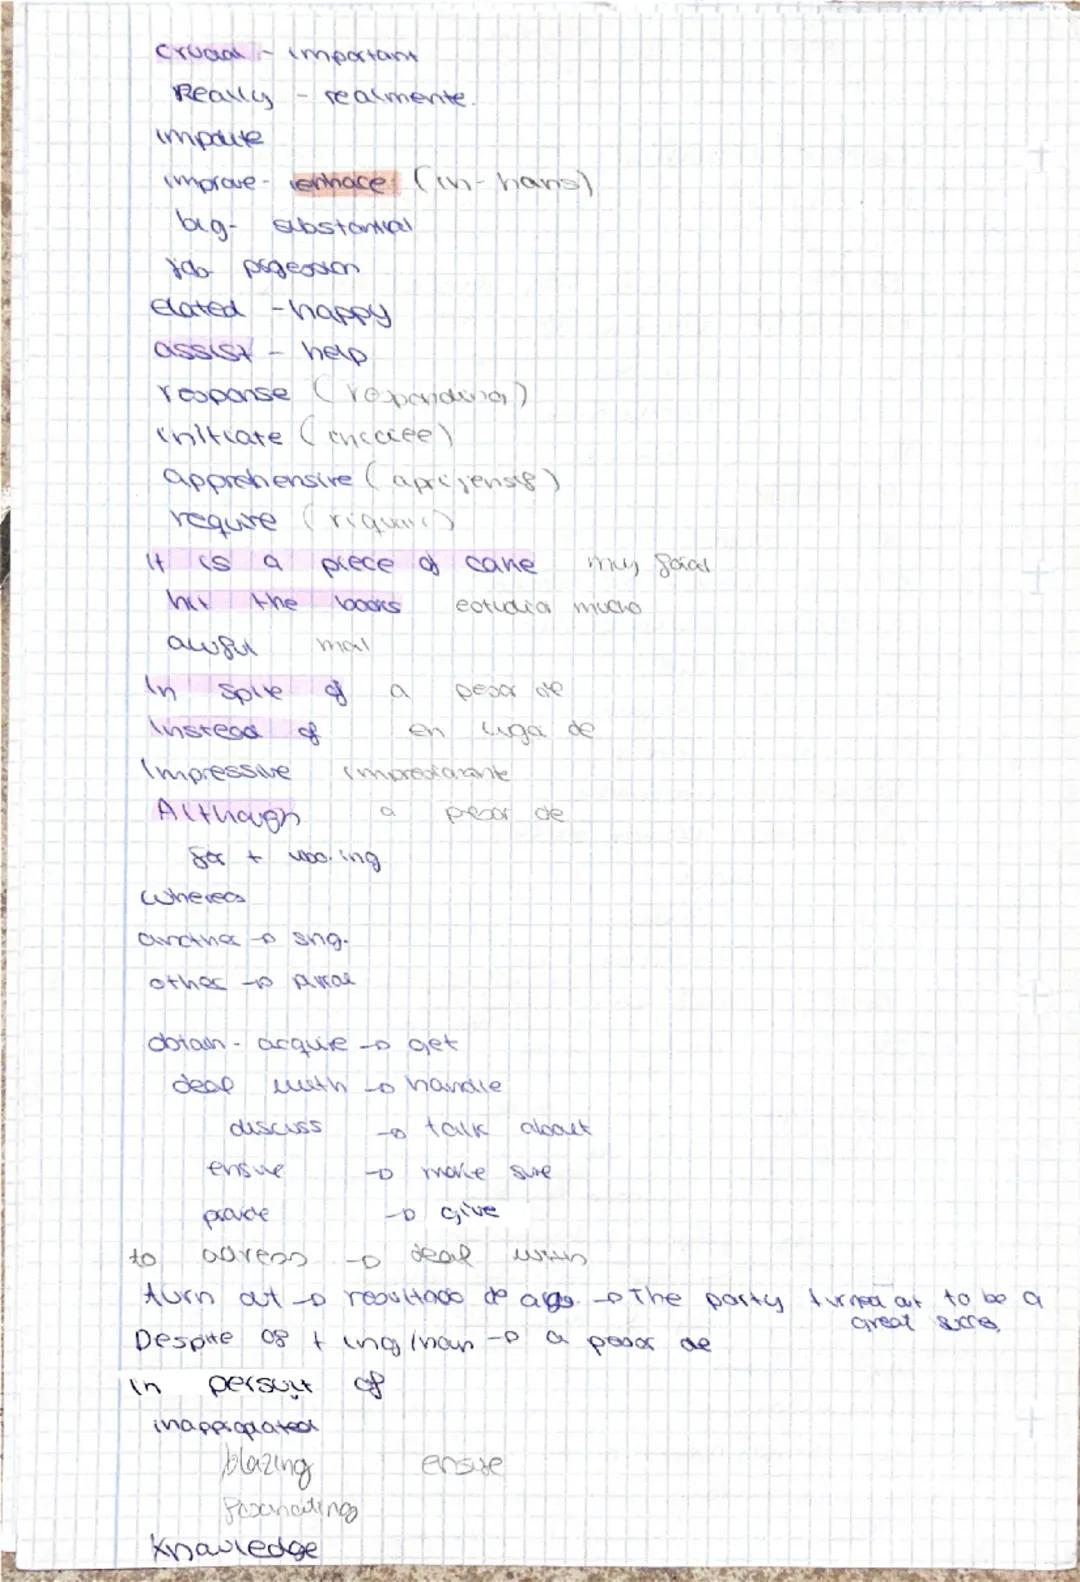 crucial - important
Really - realmente.
impolite
improve - enhace (in-hans)
big - substantial
job
elated - happy
assist - help
response (responding)
initiate
apprehensive (aprijensif)
require (riquair)
It is a piece of cake muy facial
hit the books estudia mucho
awful mal
In spite of a pesar de
Instead of en luga de
Impressive impresionante
Although a pesar de
for + ing
whereas
another → sing.
other → plural
obtain - acquire → get
deal with → handle
discuss → talk about
ensure → make sure
provide → give
to adress → deal with
turn out → resultado de algo. → The party turned out to be a
great succes
Despite of + ing/noun → a pesar de
in persuit of
inappropiated
blazing ensure
fascinating
Knowledge